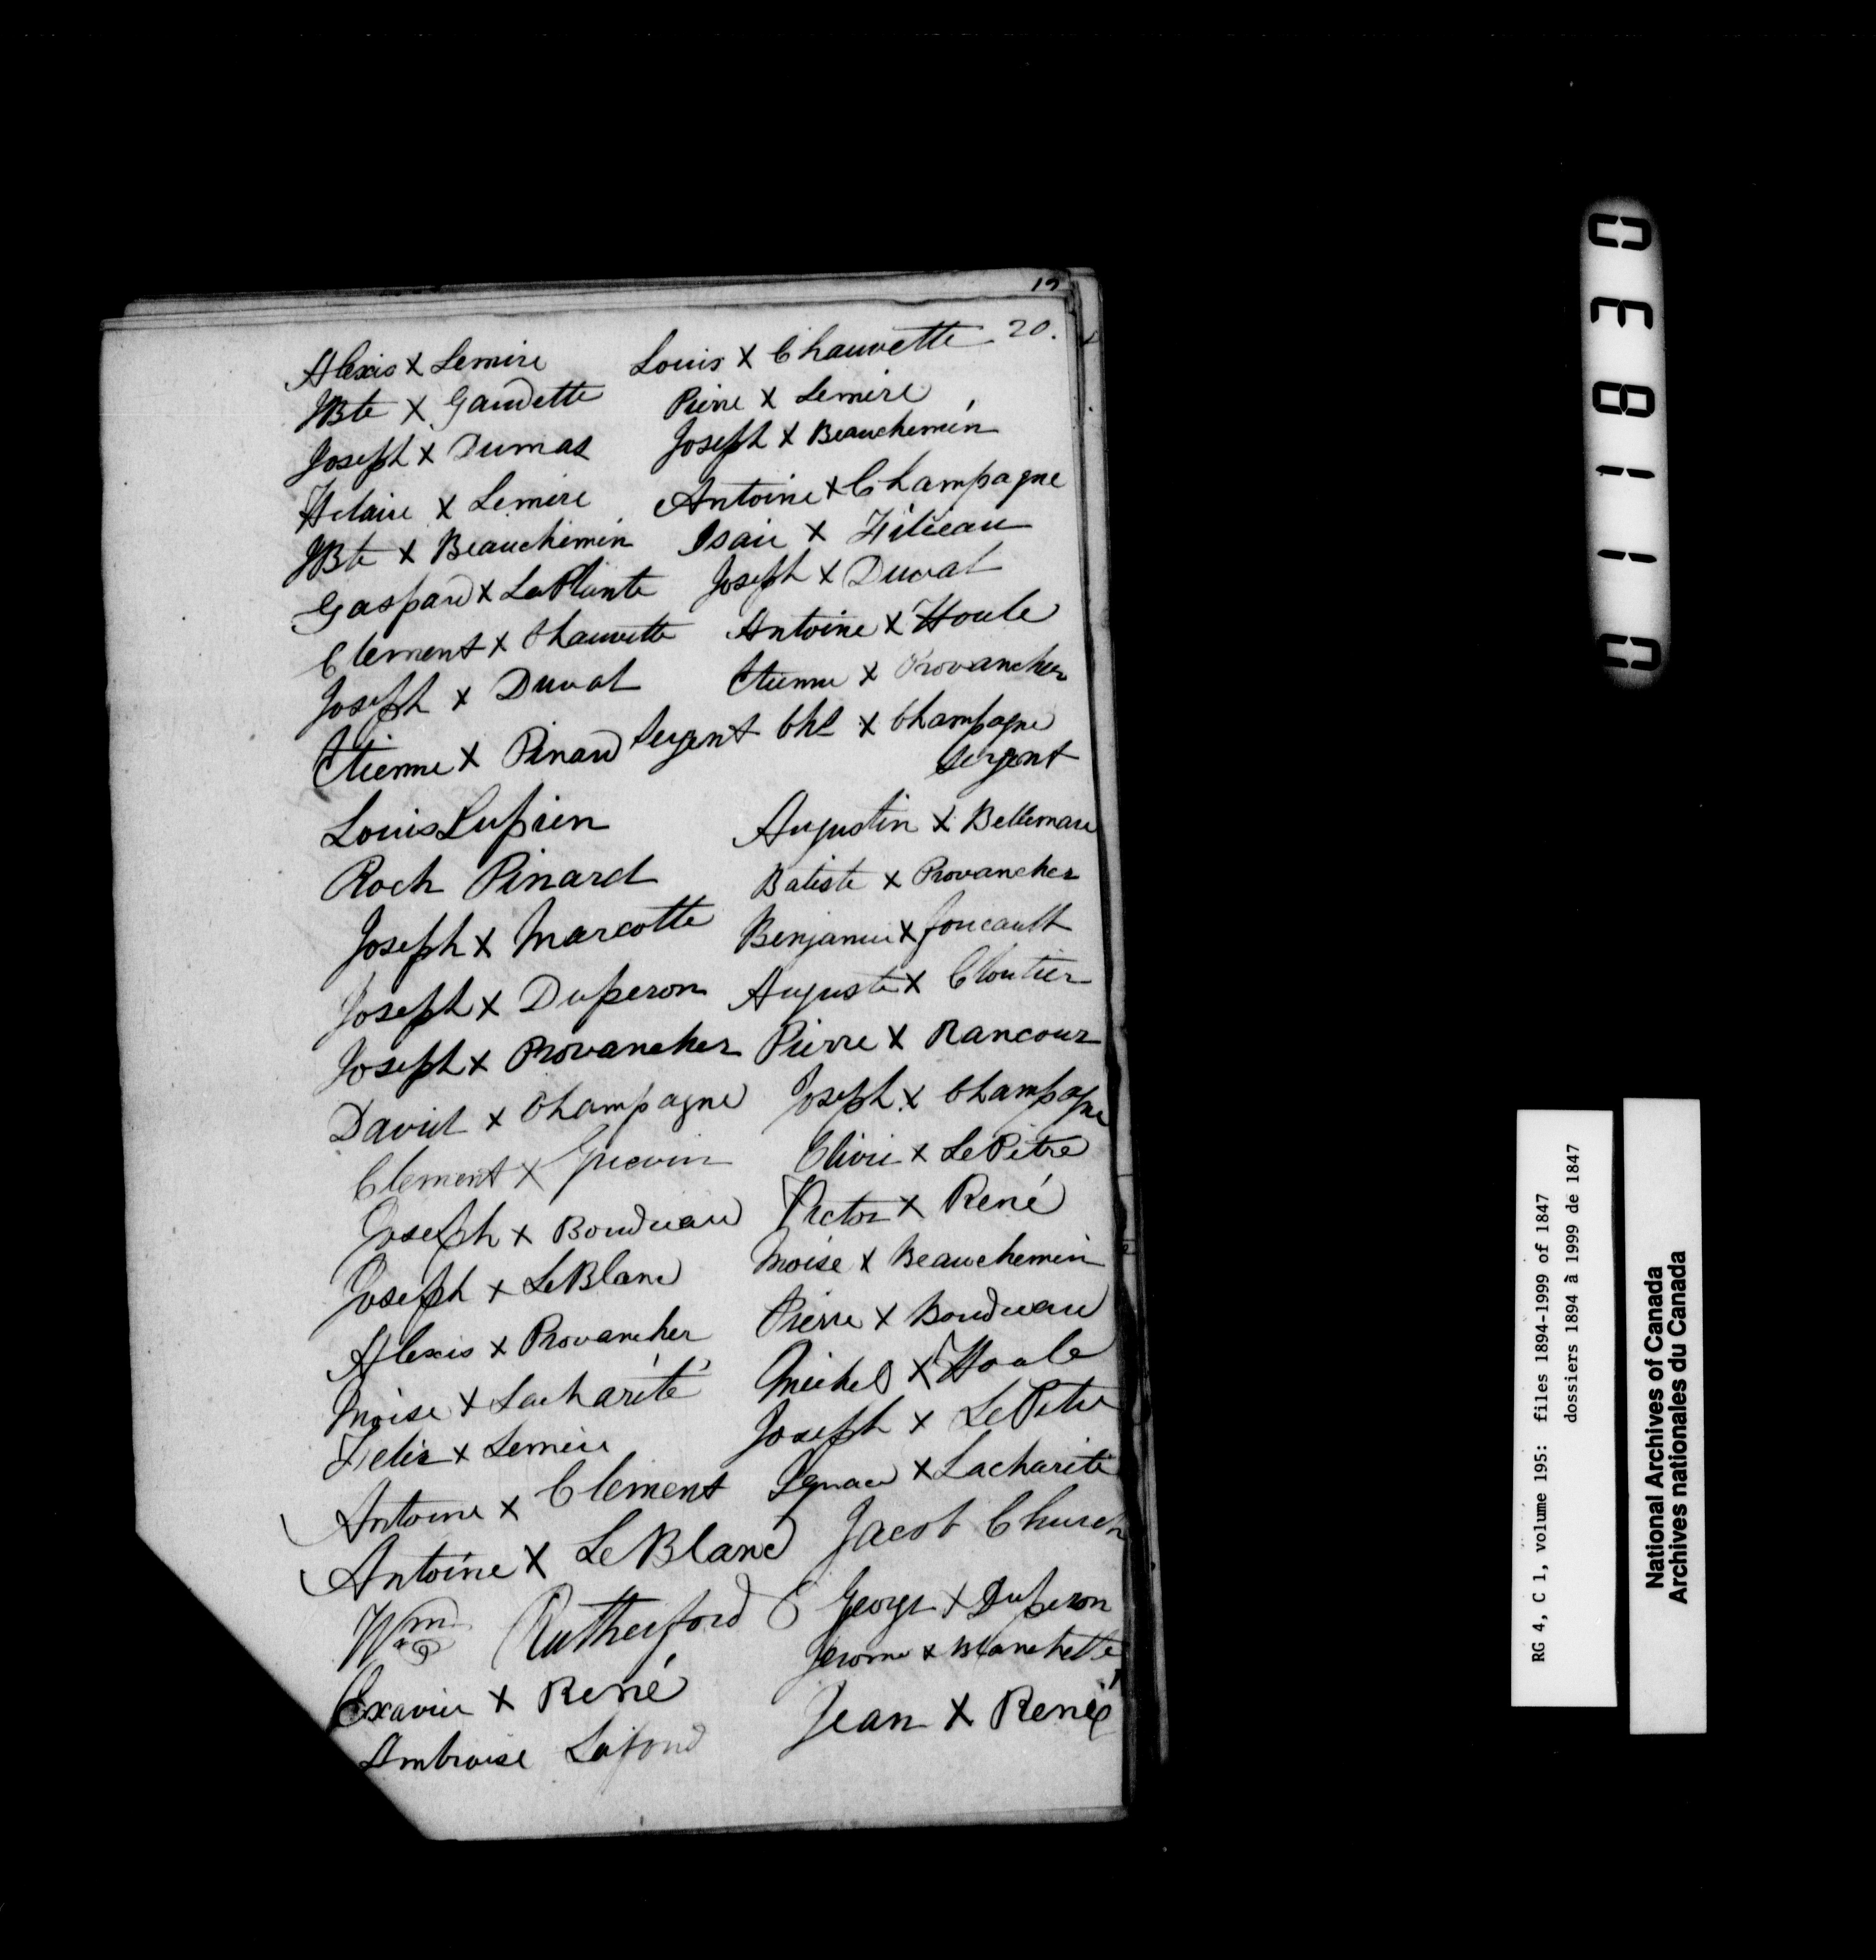 19
20.
Alexis X Lemire Louis X Chauvette
JBte X Gaudette Pierre X Lemire
Joseph X Dumas Joseph X Beauchemin
Hilaire X Lemire Antoine X Champagne
JBte X Beauchemin Isaie X
Gaspard X LaPlante Joseph X Duval
Clement X Chauvette Antoine X Houle
Joseph X Duval Etienne X Provancher
Etienne X Pinard Sergent Chs X Champagne
Sergent
Louis Lupien Augustin X Bellemare
Roch Pinard Batiste X Provancher
Joseph X Marcotte Benjamin X Foucault
Joseph X Duperon Auguste X Cloutier
Joseph X Provancher Pierre X Rancour
David X Champagne Joseph X Champagne
Clement X Olivie X LePitre
Joseph X Boudreau Victor X René
Joseph X LeBlanc Moise X Beauchemin
Alexis X Provancher Pierre X Boudreau
Moise X Lacharité Michel X Houle
Felix X Lemire Joseph X LePitre
Antoine X Clement Ignace X Lacharité
Antoine X LeBlanc Jacob Church
Wm Rutherford George X Duperon
Jerome X Blanchette
Exavier X René Jean X René
Ambroise Lafond
038110
RG 4, C 1, volume 195: files 1894-1999 of 1847
dossiers 1894 à 1999 de 1847
National Archives of Canada
Archives nationales du Canada